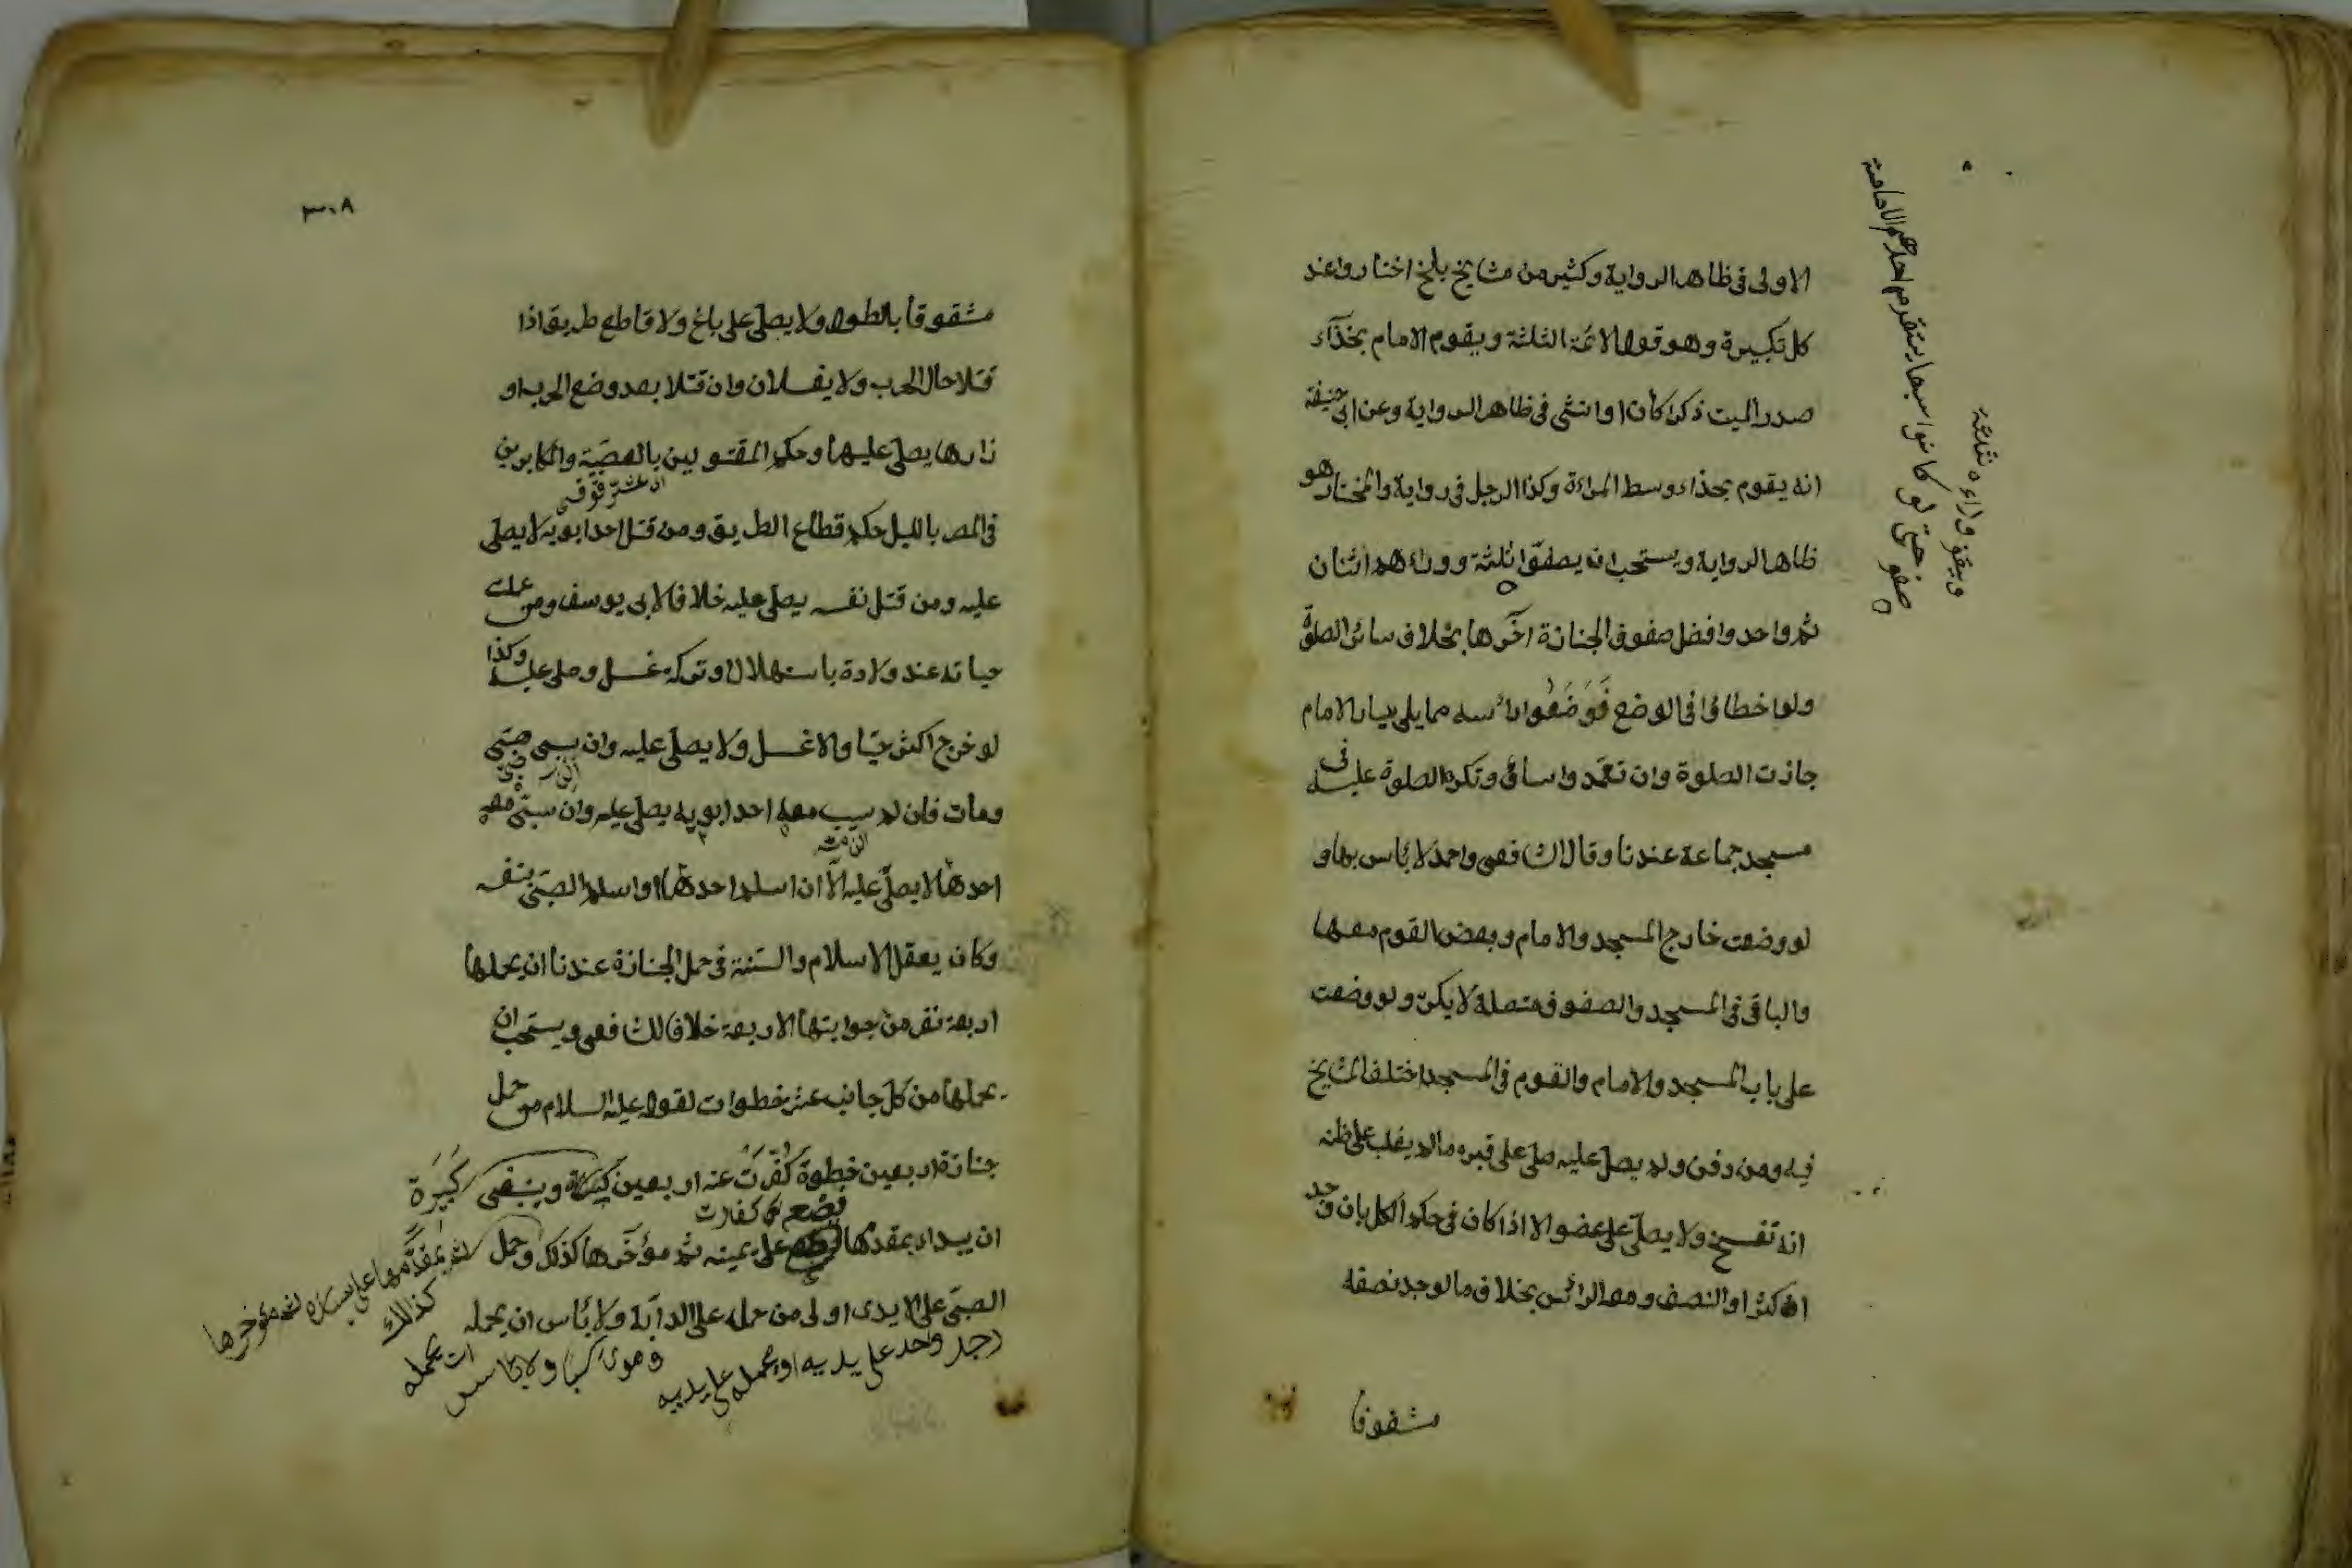 الاولى فى ظاهر الرواية وكثير من مشايخ بلخ اختاروا عند
كل تكبيرة وهو قول الائمة الثلثة ويقوم الامام بحذآء
صدر الميت ذكرا كان او انثى فى ظاهر الرواية وعن ابى حنيفة
انه يقوم بحذاء وسط المراءة وكذا الرجل فى رواية والمختار هو
ظاهر الرواية ويستحب ان يصفوا ثلثة ووراءهم اثنان
ثم واحد وافضل صفوف الجنازة اخرها بخلاف سائر الصلوة
ولو اخطاؤا فى الوضع فوضعوا راسه مما يلى يسار الامام
جازت الصلوة وان تعمدوا ساؤا وتكره الصلوة عليه فى
مسجد جماعة عندنا وقال الشافعى واحمد لا باس بها و
لو وضعت خارج المسجد والامام وبعض القوم معها
والباقى فى المسجد والصفوف متصلة لا يكره ولو وضعت
على باب المسجد والامام والقوم فى المسجد اختلف المشايخ
فيه ومن دفن ولم يصل عليه صلى على قبره ما لم يغلب على ظنه
انه تفسخ ولا يصلى على عضو الا اذا كان فى حكم الكل بان وجد
اكثر او النصف ومعه الرائس بخلاف ما لو وجد نصفه
مشقوقا
حتى لو كانوا سبعا يتقدم احدهم للامامة
ويقف وراءه ثلثة
صفو
٣٠٨
مشقوقا بالطول ولا يصلى على باغ ولا قاطع طريق اذا
قتلا حال الحرب ولا يغسلان وان قتلا بعد وضع الحرب او
زارها يصلى عليهما وحكم المقتولين بالعصبية والمكابرين
فى المصر بالليل حكم قطاع الطريق ومن قتل احد ابويه لا يصلى
عليه ومن قتل نفسه يصلى عليه خلافا لابى يوسف ومن علمت
حياته عند ولادة باستهلال او تحركه غسل وصلى عليه وكذا
لو خرج اكثر حيا والا غسل ولا يصلى عليه وان سبى صبى
ومات فان لم يسب معه احد ابويه يصلى عليه وان سبى معه
احدهما لا يصلى عليه الا ان اسلم احدهما او اسلم الصبى بنفسه
وكان يعقل الاسلام والسنة فى حمل الجنازة عندنا ان يحملها
اربعة نفر من جوانبها الاربعة خلافا للشافعى ويستحب ان
يحملها من كل جانب عشر خطوات لقوله عليه السلام من حمل
جنازة اربعين خطوة كفرت عنه اربعين كبيرة وينبغى كبيرة
ان يبداء بمقدمها فيضع على يمينه ثم مؤخرها كذلك وحمل
الصبى على الايدى اولى من حمله على الدآبة ولا باس ان يحمله
رجل واحد على يديه او يحمله على يديه
وهو راكب ولا باس ان يحمله
ثم بمقدمها على يساره ثم مؤخرها
كذالك